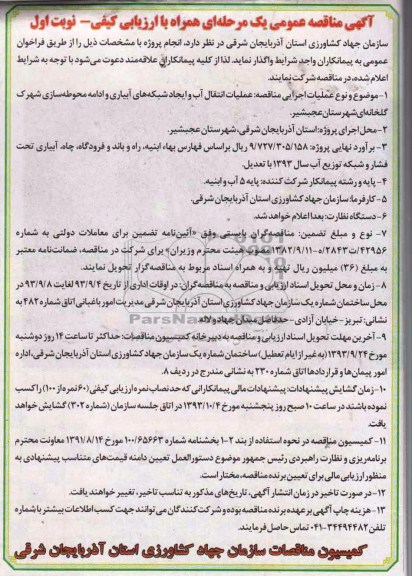 آگهی مناقصه عمومی یک مرحله‌ای همراه با ارزیابی کیفی- نوبت اول
سازمان جهاد کشاورزی استان آذربایجان شرقی در نظر دارد، انجام پروژه با مشخصات ذیل را از طریق فراخوان
عمومی به پیمانکاران واجد شرایط واگذار نماید. لذا از کلیه پیمانکاران علاقه‌مند دعوت می‌شود با توجه به شرایط
اعلام شده، در مناقصه شرکت نمایند.
۱- موضوع و نوع عملیات اجرایی مناقصه: عملیات انتقال آب و ایجاد شبکه‌های آبیاری و ادامه محوطه‌سازی شهرک
گلخانه‌ای شهرستان عجبشیر.
۲- محل اجرای پروژه: استان آذربایجان شرقی، شهرستان عجبشیر.
۳- برآورد نهایی پروژه: ۹/۷۲۷/۳۰۵/۱۵۸ ریال براساس فهارس بهاء ابنیه، راه و باند و فرودگاه، چاه، آبیاری تحت
فشار و شبکه توزیع آب سال ۱۳۹۳ با تعدیل.
۴- پایه و رشته پیمانکار شرکت کننده: پایه ۵ آب و ابنیه.
۵- کارفرما: سازمان جهاد کشاورزی استان آذربایجان شرقی.
۶- دستگاه نظارت: بعدا اعلام خواهد شد.
۷- نوع و مبلغ تضمین: مناقصه‌گران بایستی وفق «آئین‌نامه تضمین برای معاملات دولتی به شماره
۴۲۹۵۶/ت۲۸۴۳هـ-۱۳۸۲/۹/۱۱ تصویب هیئت محترم وزیران» برای شرکت در مناقصه، ضمانت‌نامه معتبر
به مبلغ (۳۶) میلیون ریال تهیه و به همراه اسناد مربوط به مناقصه‌گزار تحویل نمایند.
۸- زمان و محل تحویل اسناد ارزیابی و مناقصه به مناقصه‌گران: در اوقات اداری از تاریخ ۹۳/۹/۴ لغایت ۹۳/۹/۸ در
محل ساختمان شماره یک سازمان جهاد کشاورزی استان آذربایجان شرقی مدیریت امور باغبانی اتاق شماره ۴۸۲ به
نشانی: تبریز- خیابان آزادی- حدفاصل میدان جهاد و لاله
۹- آخرین مهلت تحویل اسناد ارزیابی و مناقصه به دبیرخانه کمیسیون مناقصات: حداکثر تا ساعت ۱۴ روز دوشنبه
مورخ ۱۳۹۳/۹/۲۴ (به غیر از ایام تعطیل) ساختمان شماره یک سازمان جهاد کشاورزی استان آذربایجان شرقی، اداره
امور پیمان‌ها و قراردادها اتاق شماره ۲۳۰ به نشانی مندرج در ردیف ۸.
۱۰- زمان گشایش پیشنهادات: پیشنهادات مالی پیمانکارانی که حد نصاب نمره ارزیابی کیفی (۶۰ نمره از ۱۰۰) را کسب
نموده باشند در ساعت ۱۰ صبح روز پنجشنبه مورخ ۱۳۹۳/۱۰/۴ در اتاق جلسه سازمان (شماره ۳۰۲) گشایش خواهد
یافت.
۱۱- کمیسیون مناقصه در نحوه استفاده از بند ۲-۱ بخشنامه شماره ۱۰۰/۶۵۶۶۳ مورخ ۱۳۹۱/۸/۱۴ معاونت محترم
برنامه‌ریزی و نظارت راهبردی رئیس جمهور موضوع دستورالعمل تعیین دامنه قیمت‌های متناسب پیشنهادی به
منظور ارزیابی مالی برای تعیین برنده مناقصه، مختار است.
۱۲- در صورت تاخیر در زمان انتشار آگهی، تاریخ‌های مذکور به تناسب تاخیر، تغییر خواهند یافت.
۱۳- هزینه چاپ آگهی بر عهده برنده مناقصه بوده و شرکت کنندگان می‌توانند جهت کسب اطلاعات بیشتر با شماره
تلفن ۳۴۴۹۴۴۸۲-۰۴۱ تماس حاصل فرمایند.
کمیسیون مناقصات سازمان جهاد کشاورزی استان آذربایجان شرقی